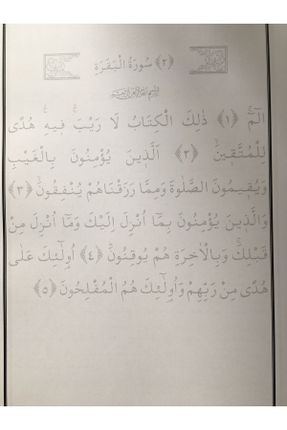 ﴿٢﴾ سُورَةُ الْبَقَرَةِ
بِسْمِ اللّٰهِ الرَّحْمٰنِ الرَّحِيمِ
الٓمٓ ﴿١﴾ ذٰلِكَ الْكِتَابُ لَا رَيْبَۚ فِيهِۚ هُدًى
لِلْمُتَّقِينَۙ ﴿٢﴾ اَلَّذِينَ يُؤْمِنُونَ بِالْغَيْبِ
وَيُقِيمُونَ الصَّلٰوةَ وَمِمَّا رَزَقْنَاهُمْ يُنْفِقُونَۙ ﴿٣﴾
وَالَّذِينَ يُؤْمِنُونَ بِمَٓا اُنْزِلَ اِلَيْكَ وَمَٓا اُنْزِلَ مِنْ
قَبْلِكَۚ وَبِالْاٰخِرَةِ هُمْ يُوقِنُونَۜ ﴿٤﴾ اُولٰٓئِكَ عَلٰى
هُدًى مِنْ رَبِّهِمْ وَاُولٰٓئِكَ هُمُ الْمُفْلِحُونَ ﴿٥﴾